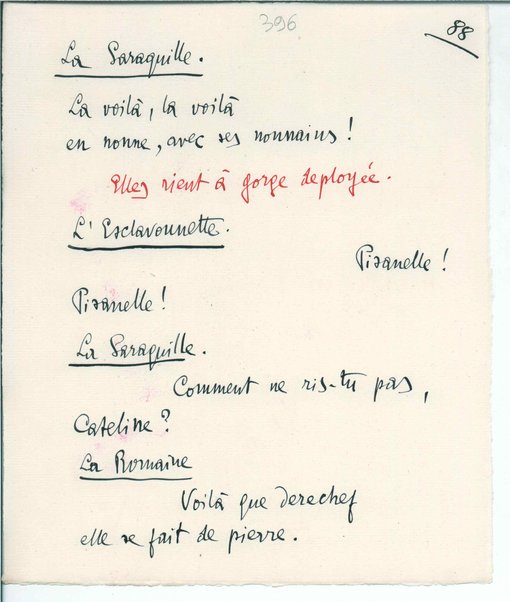 396
88
La Saraquille.
La voilà, la voilà
en nonne, avec ses nonnains!
Elles rient à gorge deployée.
L'Esclavonnette.
Pisanelle!
Pisanelle!
La Saraquille.
Comment ne ris-tu pas,
Cateline?
La Romaine
Voilà que derechef
elle se fait de pierre.